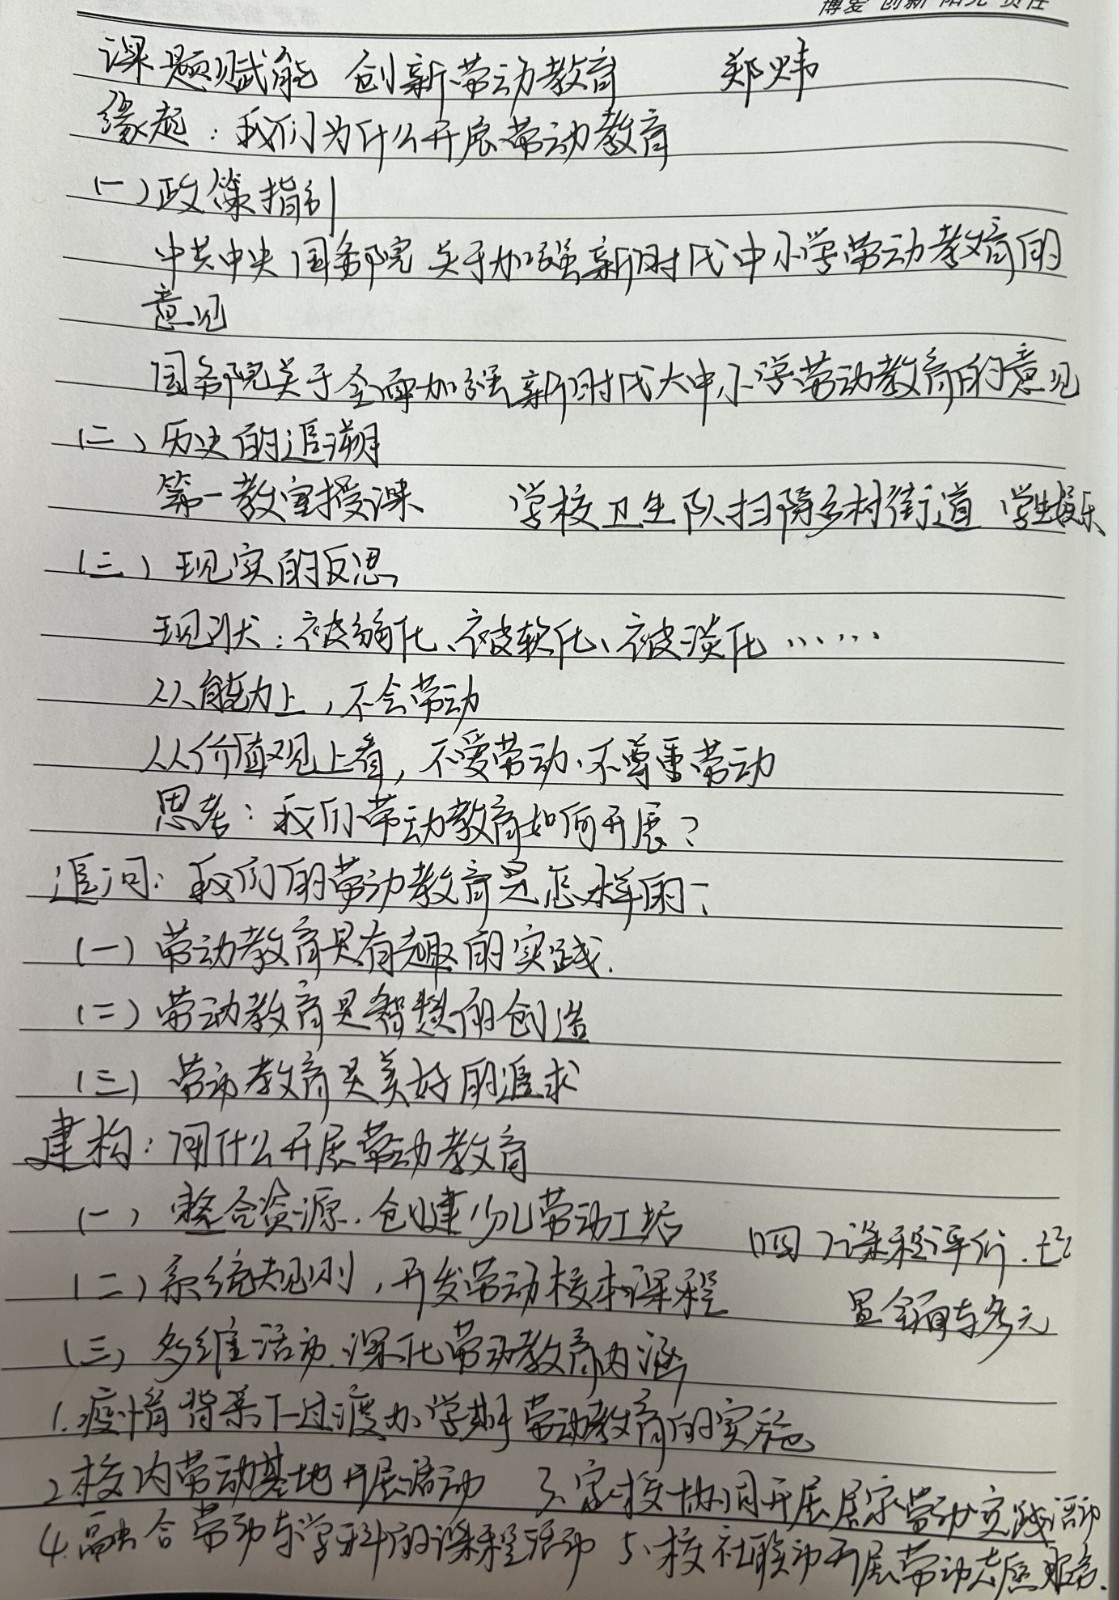 博爱 创新 阳光 责任
课题赋能 创新劳动教育 郑炜
缘起：我们为什么开展劳动教育
(一)政策指引
中共中央 国务院 关于加强新时代中小学劳动教育的
意见
国务院关于全面加强新时代大中小学劳动教育的意见
(二)历史的追溯
第一教室授课 学校卫生队扫除乡村街道 学生娱乐
(三)现实的反思
现状：被弱化、被软化、被淡化……
从能力上，不会劳动
从价值观上看，不爱劳动、不尊重劳动
思考：我们劳动教育如何开展？
追问：我们的劳动教育是怎样的？
(一)劳动教育是有趣的实践.
(二)劳动教育是智慧的创造
(三)劳动教育是美好的追求
建构：用什么开展劳动教育
(一)整合资源.创建少儿劳动工坊
(二)系统规则，开发劳动校本课程
(三)多维活动.深化劳动教育内涵
(四)课程评价.
量全面与多元
1.疫情背景下过渡办学期劳动教育的实施
2.校内劳动基地开展活动 3、家校协同开展居家劳动实践活动
4.融合劳动与学科的课程活动 5、校社联动开展劳动志愿服务.